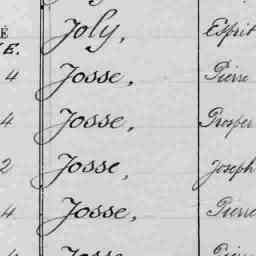 É Joly, Esprit
E.
4 Josse, Pierre
4 Josse, Prosper
2 Josse, Joseph
4 Josse, Pierre